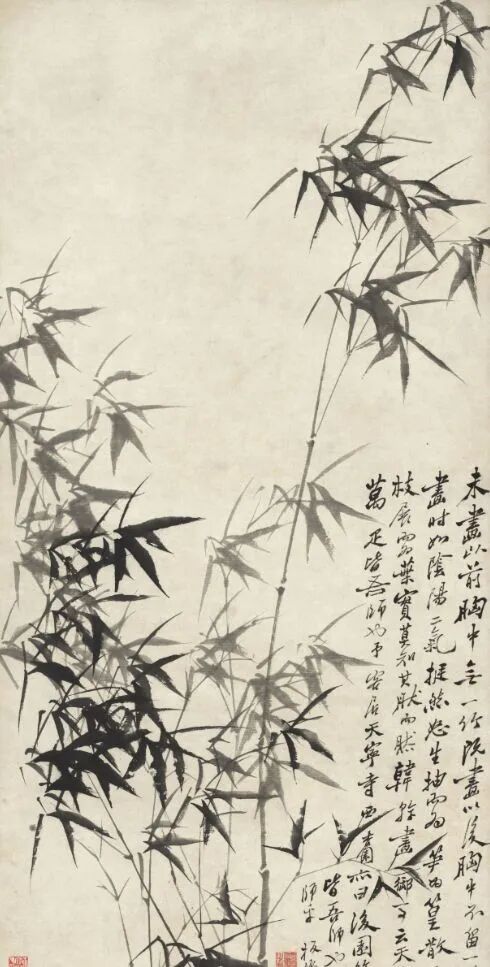 未畫以前胸中無一竹既畫以後胸中不留一
畫時如陰陽二氣挺然怒生抽而為笋為篁散
枝展而為葉實莫知其然而然韓幹畫御馬云天
萬疋皆吾師也予客居天寧寺西園亦曰後園竹
皆吾師也
師乎板